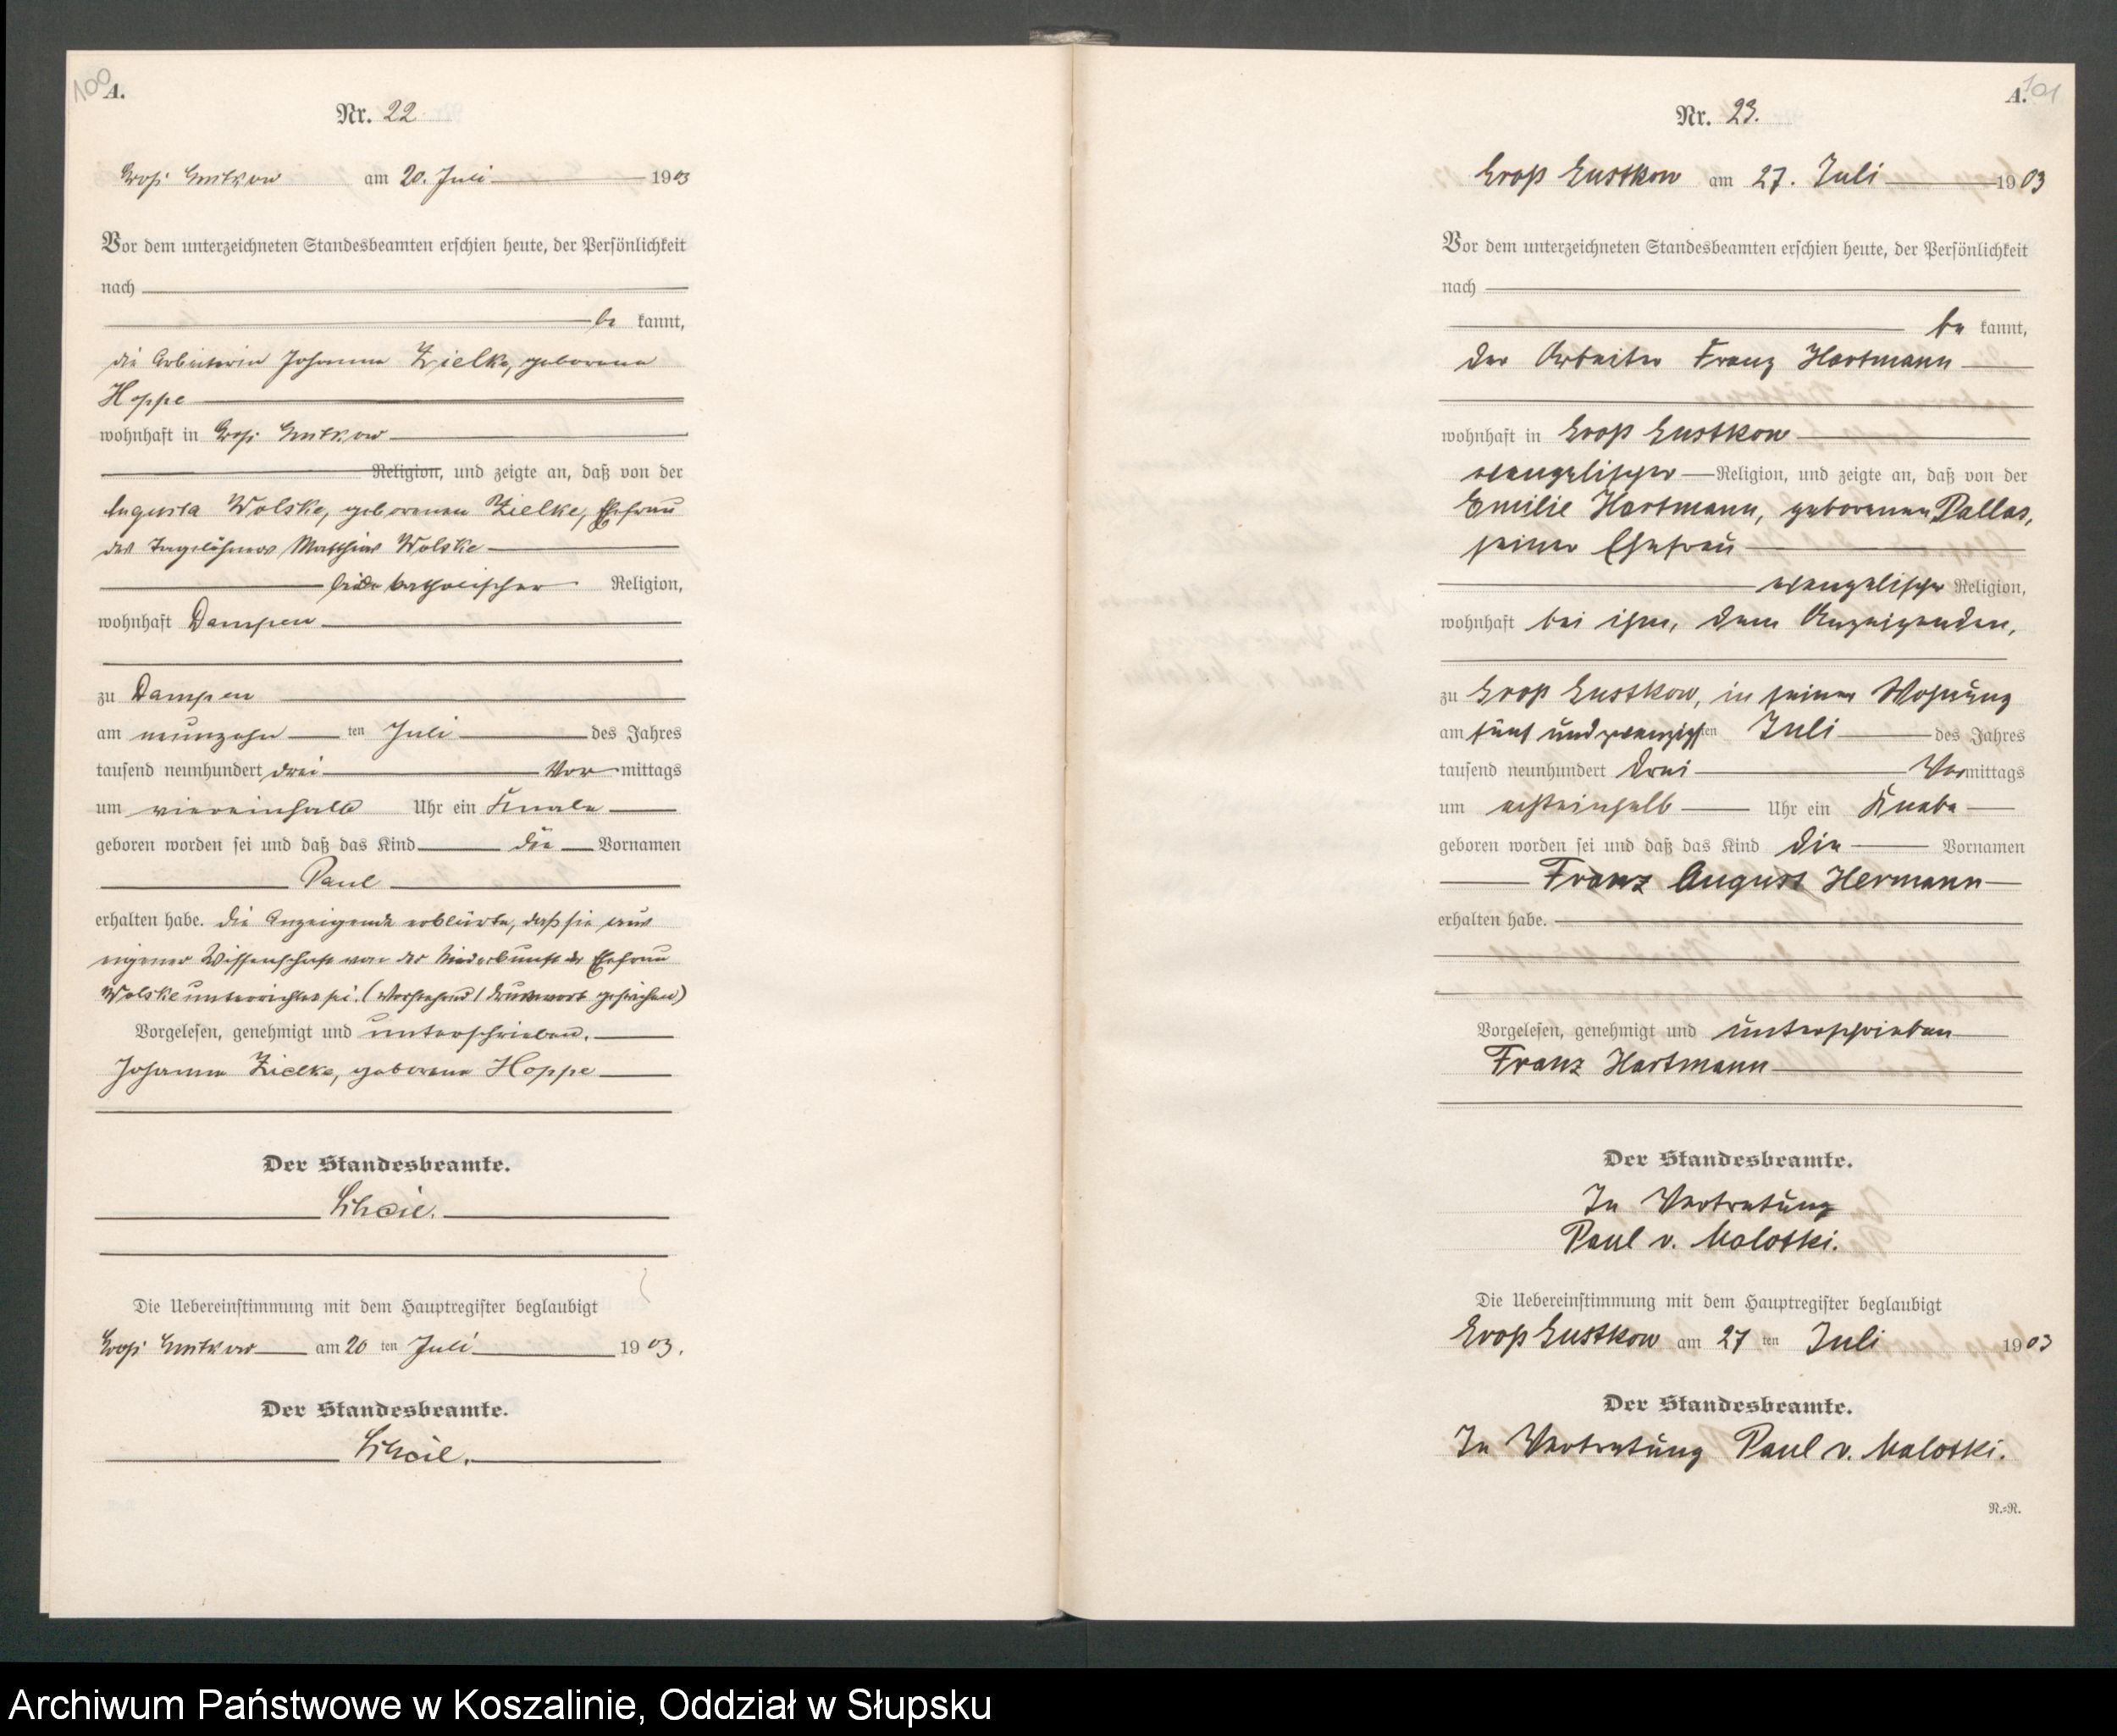 100
A.
Nr. 22
Groß Gustkow am 20. Juli 1903
Vor dem unterzeichneten Standesbeamten erschien heute, der Persönlichkeit
nach
be kannt,
die Arbeiterin Johanna Zielke, geborene
Hoppe
wohnhaft in Groß Gustkow
Religion, und zeigte an, daß von der
Augusta Wolske, geborenen Zielke, Ehefrau
des Tagelöhners Matthias Wolske
beide katholischer Religion,
wohnhaft Dampen
zu Dampen
am neunzehn ten Juli des Jahres
tausend neunhundert drei Vor mittags
um viereinhalb Uhr ein Knabe
geboren worden sei und daß das Kind die Vornamen
Paul
erhalten habe. Die Anzeigende erklärte, daß sie aus
eigener Wissenschaft von der Niederkunft der Ehefrau
Wolske unterrichtet sei. (Vorstehend 1 Druckwort gestrichen)
Vorgelesen, genehmigt und unterschrieben.
Johanna Zielke, geborene Hoppe
Der Standesbeamte.
Die Uebereinstimmung mit dem Hauptregister beglaubigt
Groß Gustkow am 20 ten Juli 1903.
Der Standesbeamte.
101
A.
Nr. 23.
Groß Gustkow am 27. Juli 1903
Vor dem unterzeichneten Standesbeamten erschien heute, der Persönlichkeit
nach
be kannt,
der Arbeiter Franz Hartmann
wohnhaft in Groß Gustkow
evangelischer Religion, und zeigte an, daß von der
Emilie Hartmann, geborenen Pallas,
seiner Ehefrau
evangelischer Religion,
wohnhaft bei ihm, dem Anzeigenden,
zu Groß Gustkow, in seiner Wohnung
am fünf und zwanzigsten Juli des Jahres
tausend neunhundert drei Vormittags
um achteinhalb Uhr ein Knabe
geboren worden sei und daß das Kind die Vornamen
Franz August Hermann
erhalten habe.
Vorgelesen, genehmigt und unterschrieben
Franz Hartmann
Der Standesbeamte.
In Vertretung
Paul v. Malotki.
Die Uebereinstimmung mit dem Hauptregister beglaubigt
Groß Gustkow am 27 ten Juli 1903
Der Standesbeamte.
In Vertretung Paul v. Malotki.
R.=R.
Archiwum Państwowe w Koszalinie, Oddział w Słupsku